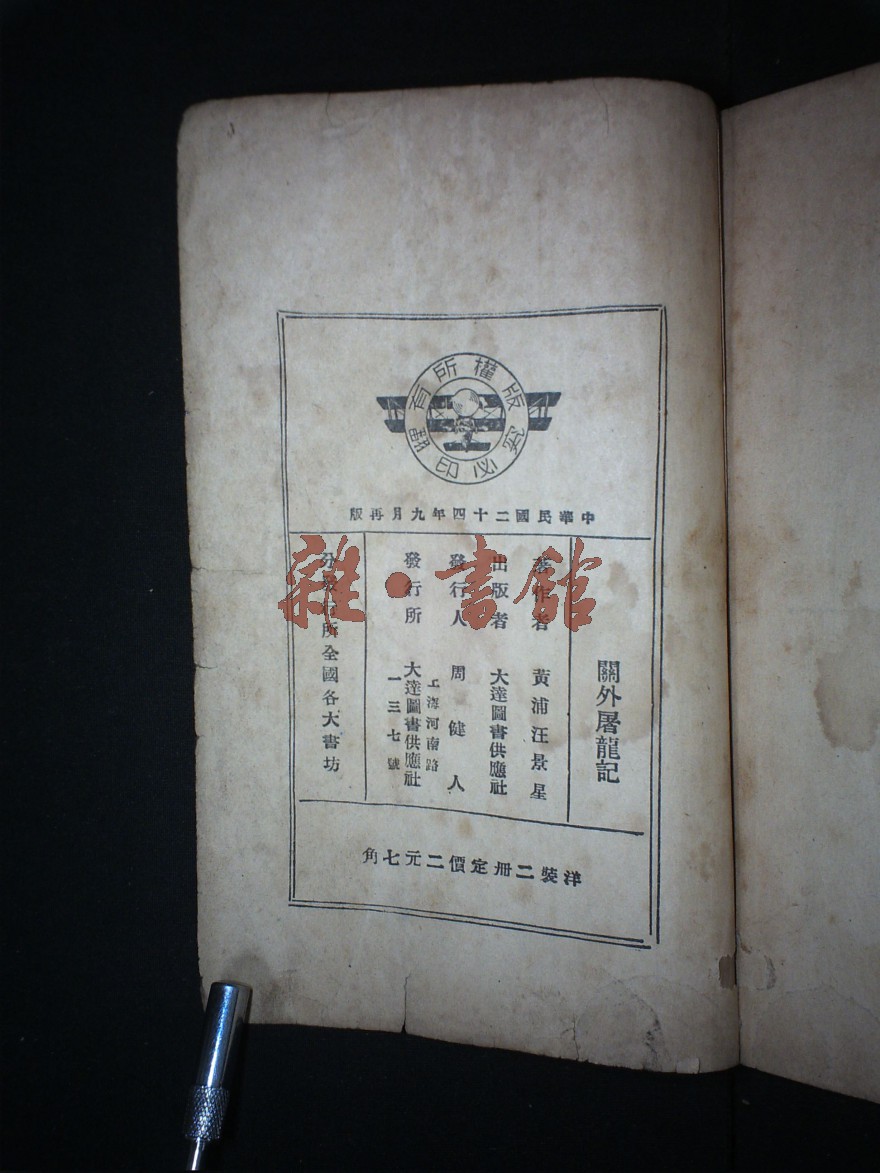 版權所有
翻印必究
中華民國二十四年九月再版
關外屠龍記
著作者 黃浦汪景星
出版者 大達圖書供應社
發行人 周健人
發行所 上海河南路一三七號
大達圖書供應社
分發行所全國各大書坊
洋裝二冊定價二元七角
雜·書館